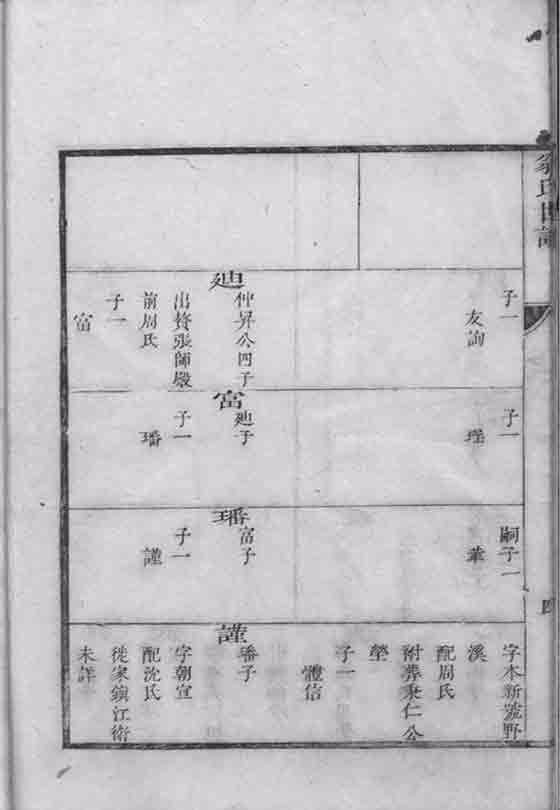 氏世譜
四
子一
友詢
廸
仲昇公四子
出贅張師殿
前周氏
子一
富
子一
珵
富
廸子
子一
璠
嗣子一
華
璠
富子
子一
謹
字本新號野
溪
配周氏
附葬秉仁公
塋
子一
體信
謹
璠子
字朝宣
配沈氏
徙家鎮江衛
未詳